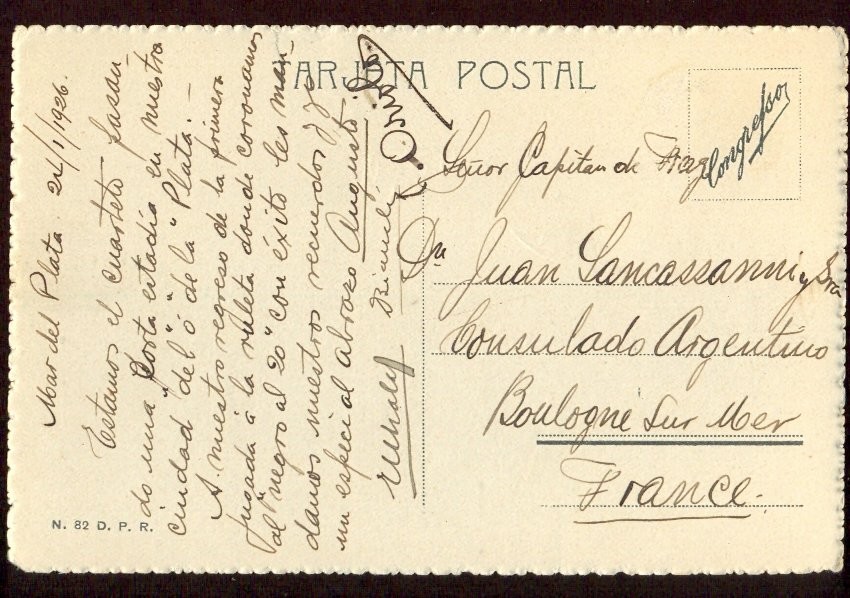 TARJETA POSTAL
Mar del Plata 24/1/1926.
Estamos el cuarteto pasan-
do una corta estadía en nuestra
ciudad del "ó de la "Plata". —
A nuestro regreso de la primera
jugada á la ruleta donde coronamos
al "negro al 20" con éxito les man-
damos nuestros recuerdos y
un especial abrazo Augusto
Señor Capitan de Frag
Congressos
Dn Juan Lancassanni y Sra
Consulado Argentino
Boulogne Sur Mer
France.
N. 82 D. P. R.